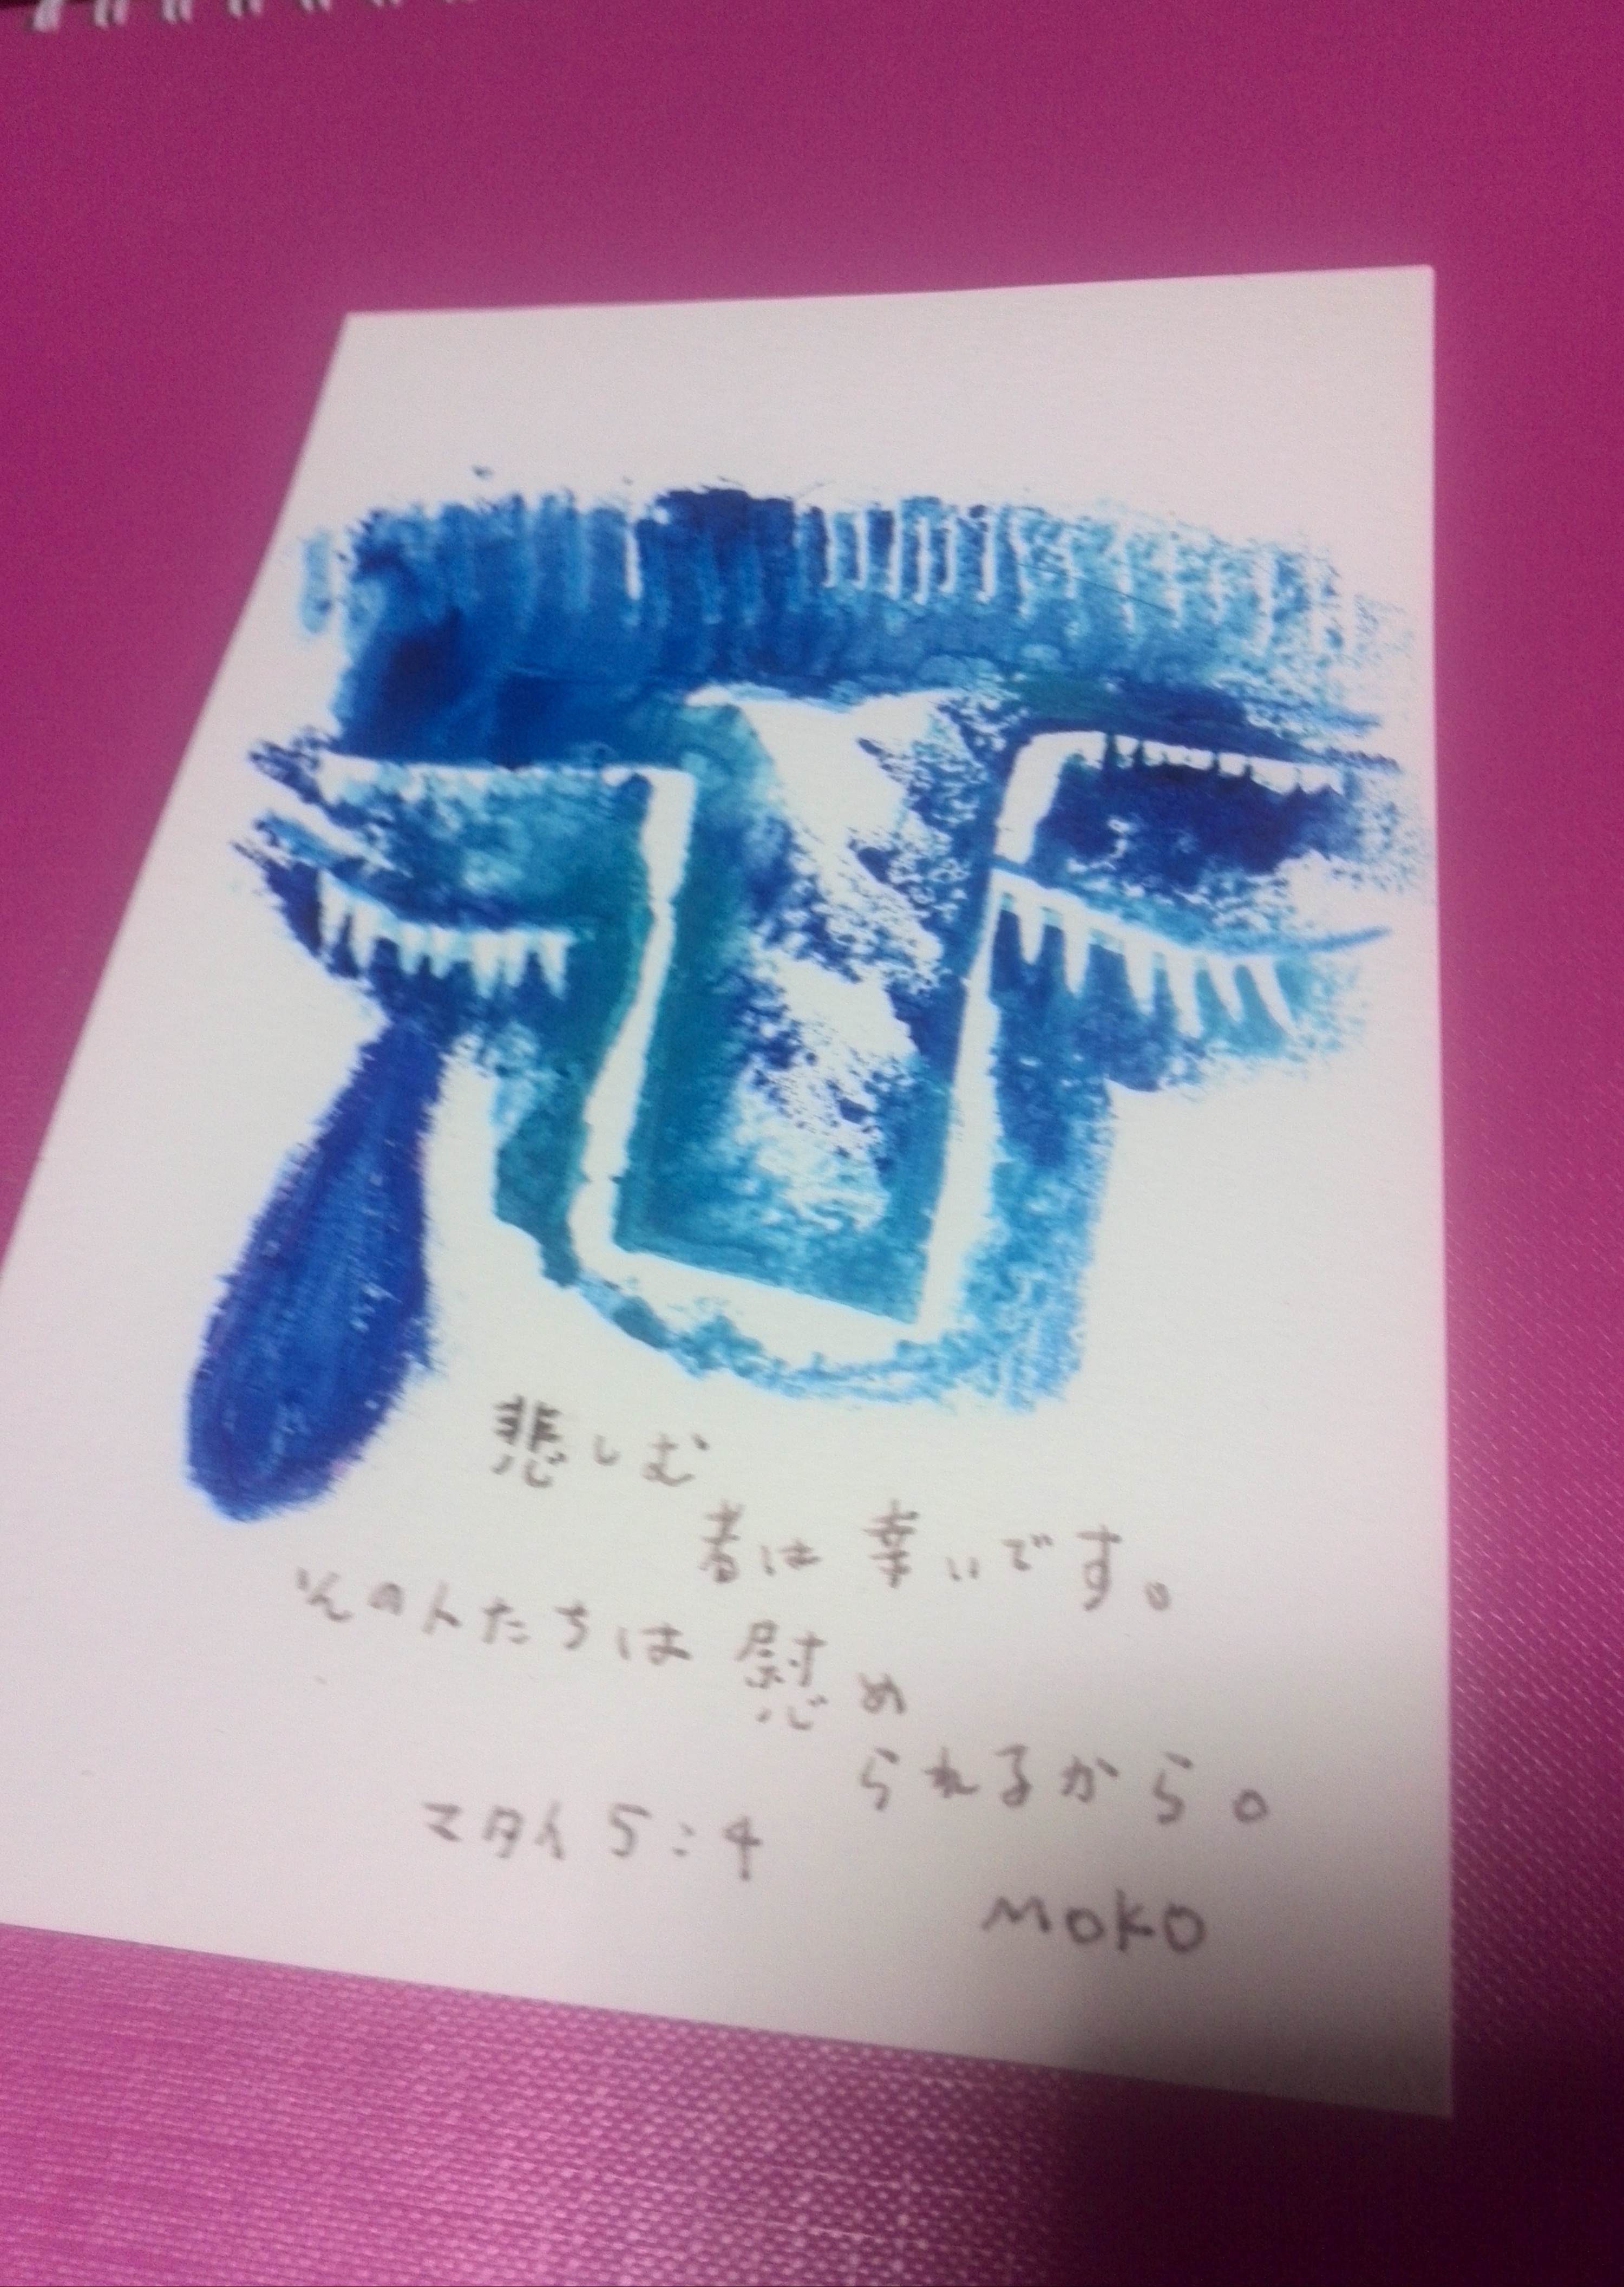 悲しむ
者は幸いです。
その人たちは慰め
られるから。
マタイ5:4
MOKO